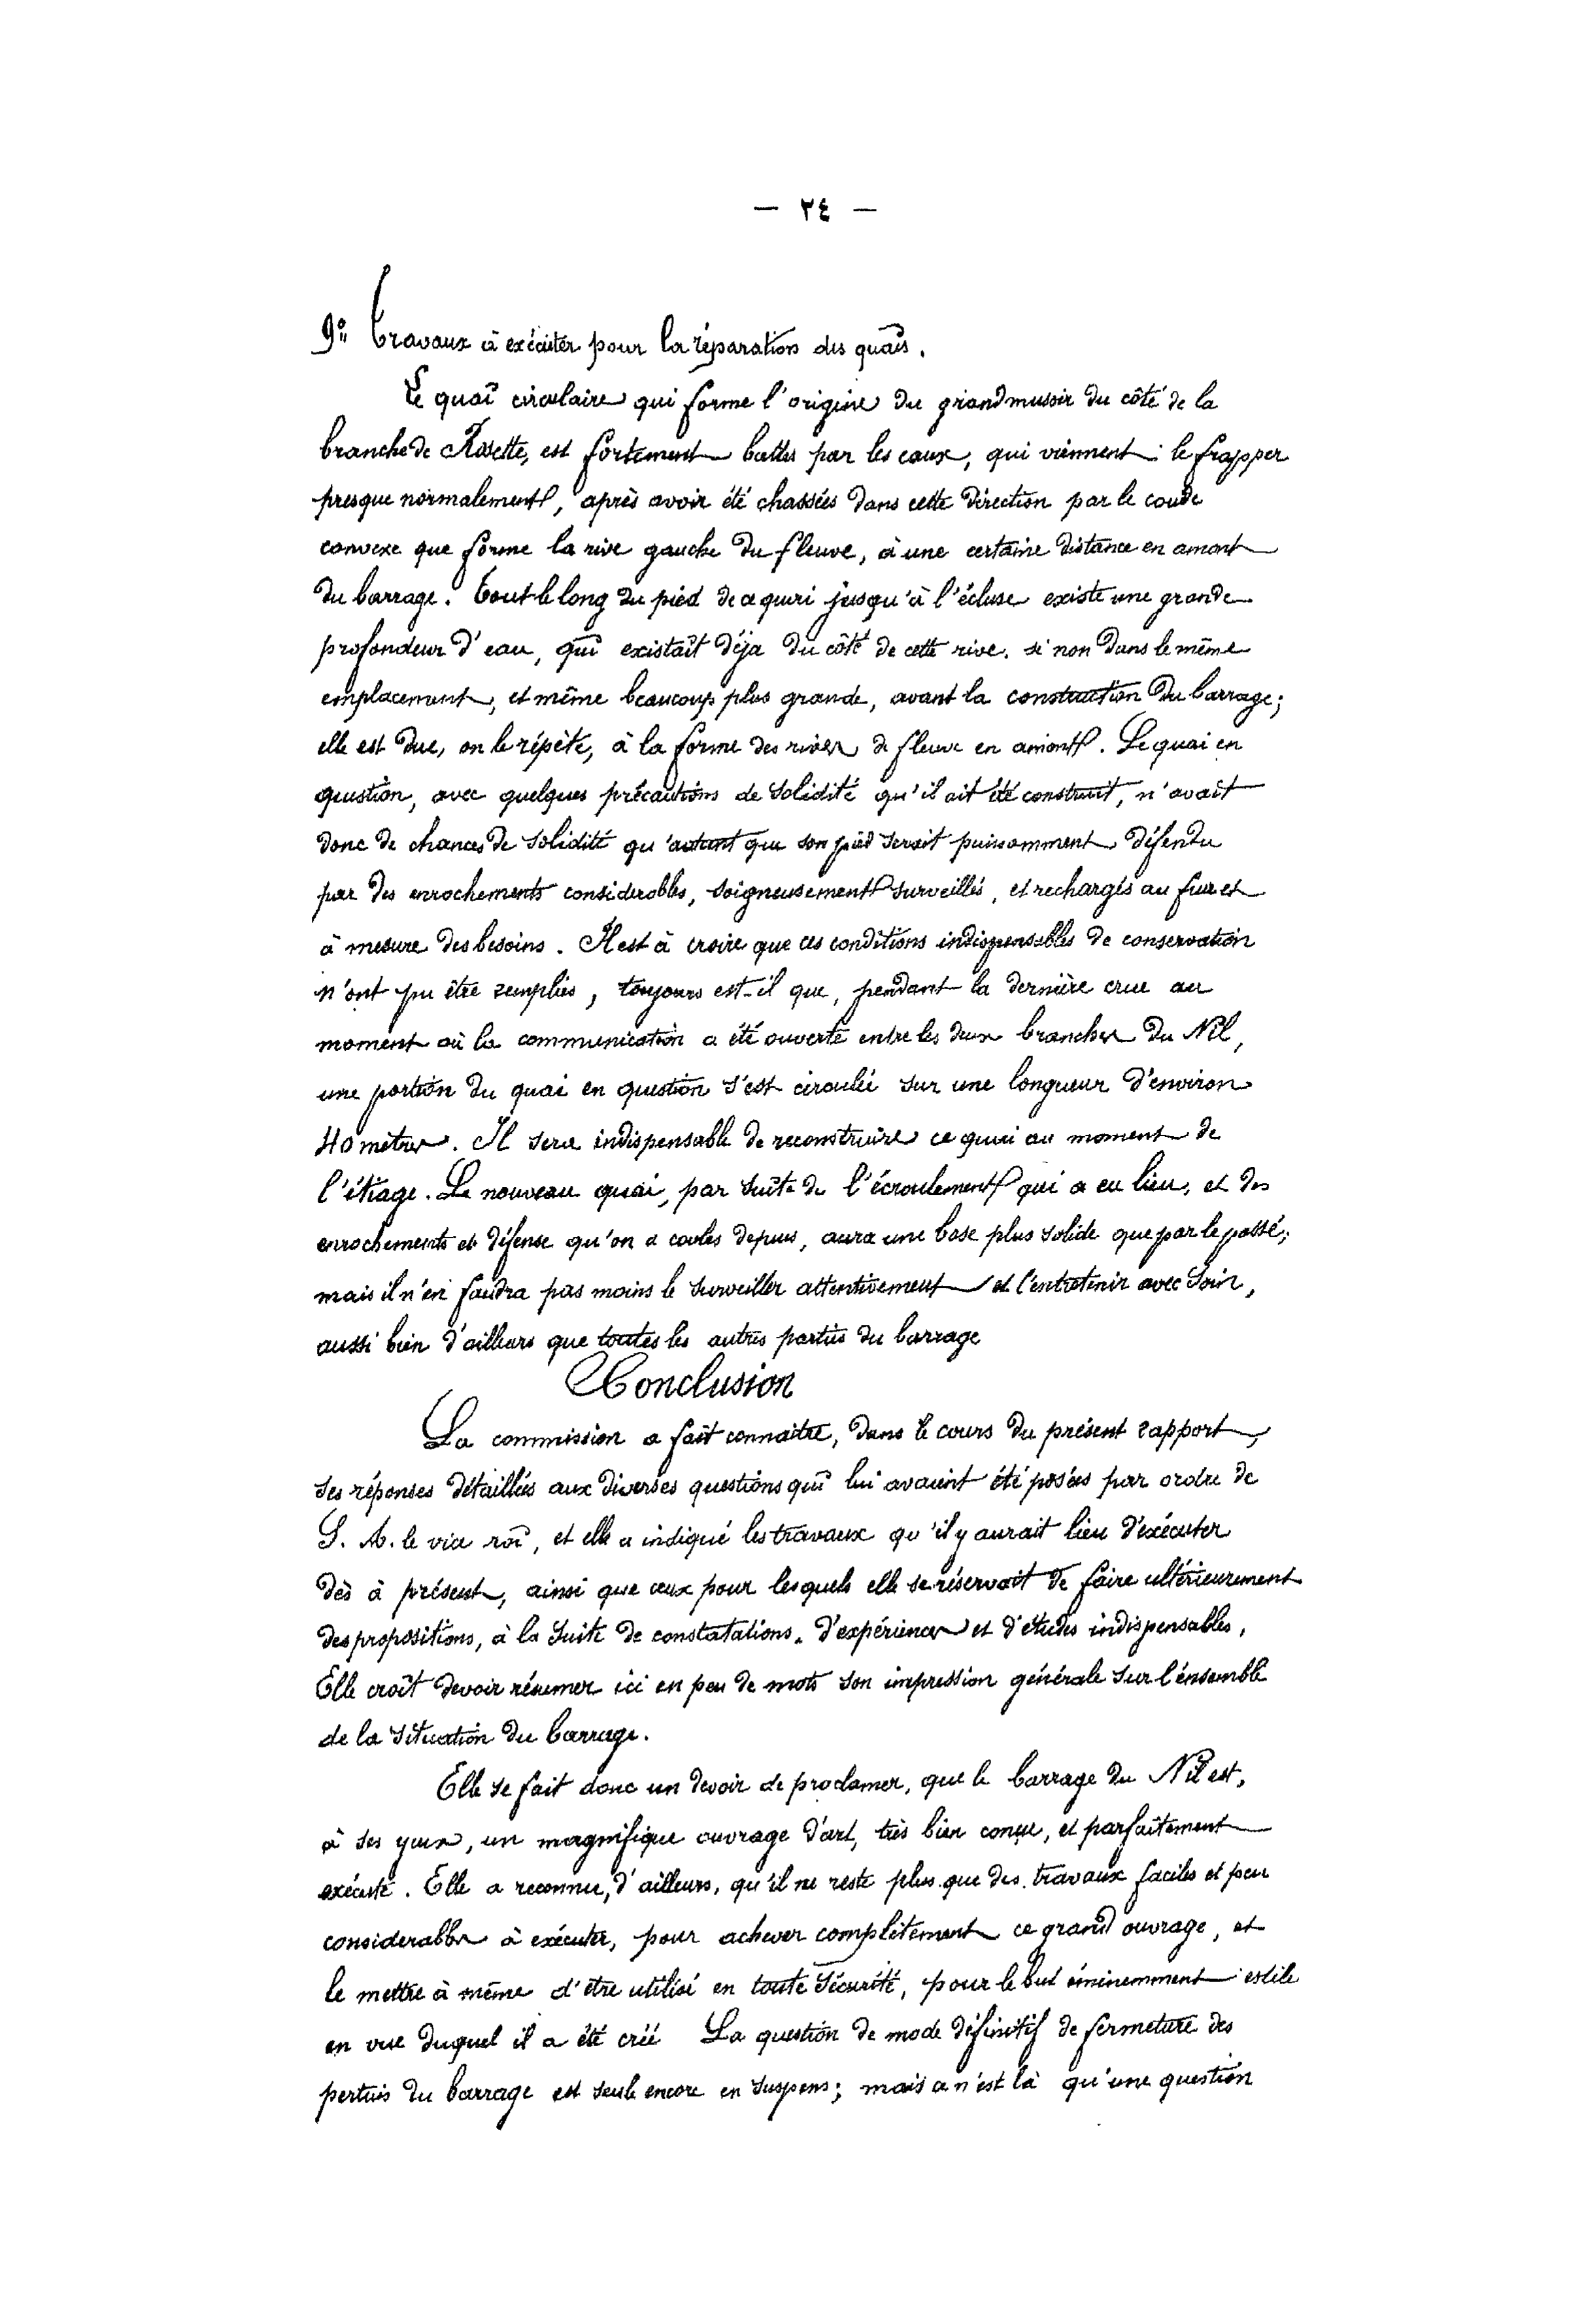 — ٢٤ —
9º Travaux à exécuter pour la réparation des quais.
Le quai circulaire qui forme l'origine du grand mussoir du côté de la
branche de Rosette, est fortement battu par les eaux, qui viennent le frapper
presque normalement, après avoir été chassées dans cette direction par le coude
convexe que forme la rive gauche du fleuve, à une certaine distance en amont
du barrage. Tout le long du pied de ce quai jusqu'à l'écluse existe une grande
profondeur d'eau, qui existait déja du côté de cette rive. si non dans le même
emplacement, et même beaucoup plus grande, avant la construction du barrage;
elle est due, on le répète, à la forme des rives de fleuve en amont. Le quai en
question, avec quelques précautions de solidité qu'il ait été construit, n'avait
donc de chances de solidité qu'autant que son pied serait puissamment défendu
par des enrochements considerables, soigneusement surveillés, et rechargés au fur et
à mesure des besoins. Il est à croire que ces conditions indispensables de conservation
n'ont pu être remplies, toujours est-il que, pendant la dernière crue au
moment où la communication a été ouverte entre les deux branches du Nil,
une portion du quai en question s'est écroulée sur une longueur d'environ
40 mètres. Il sera indispensable de reconstruire ce quai au moment de
l'étiage. Le nouveau quai, par suite de l'écroulement qui a eu lieu, et des
enrochements et défense qu'on a coulés depuis, aura une base plus solide que par le passé;
mais il n'en faudra pas moins le surveiller attentivement et l'entretenir avec soin,
aussi bien d'ailleurs que toutes les autres parties du barrage
Conclusion
La commission a fait connaitre, dans le cours du présent rapport,
ses réponses détaillées aux diverses questions qui lui avaient été posées par ordre de
S. A. le vice roi, et elle a indiqué les travaux qu'il y aurait lieu d'exécuter
dès à présent, ainsi que ceux pour lesquels elle se réservait de faire ultérieurement
des propositions, à la suite de constatations. d'expériences et d'études indispensables,
Elle croît devoir résumer ici en peu de mots son impression générale sur l'énsemble
de la situation du barrage.
Elle se fait donc un devoir de proclamer, que le barrage du Nil est,
à ses yeux, un magnifique ouvrage d'art, très bien conçu, et parfaitement
exécuté. Elle a reconnu, d'ailleurs, qu'il ne reste plus que des travaux faciles et peu
considerables à exécuter, pour achever complètement ce grand ouvrage, et
le mettre à même d'être utilisé en toute sécurité, pour le but éminemment utile
en vue duquel il a été créé La question de mode définitif de fermeture des
pertuis du barrage est seule encore en suspens; mais ce n'est là qu'une question